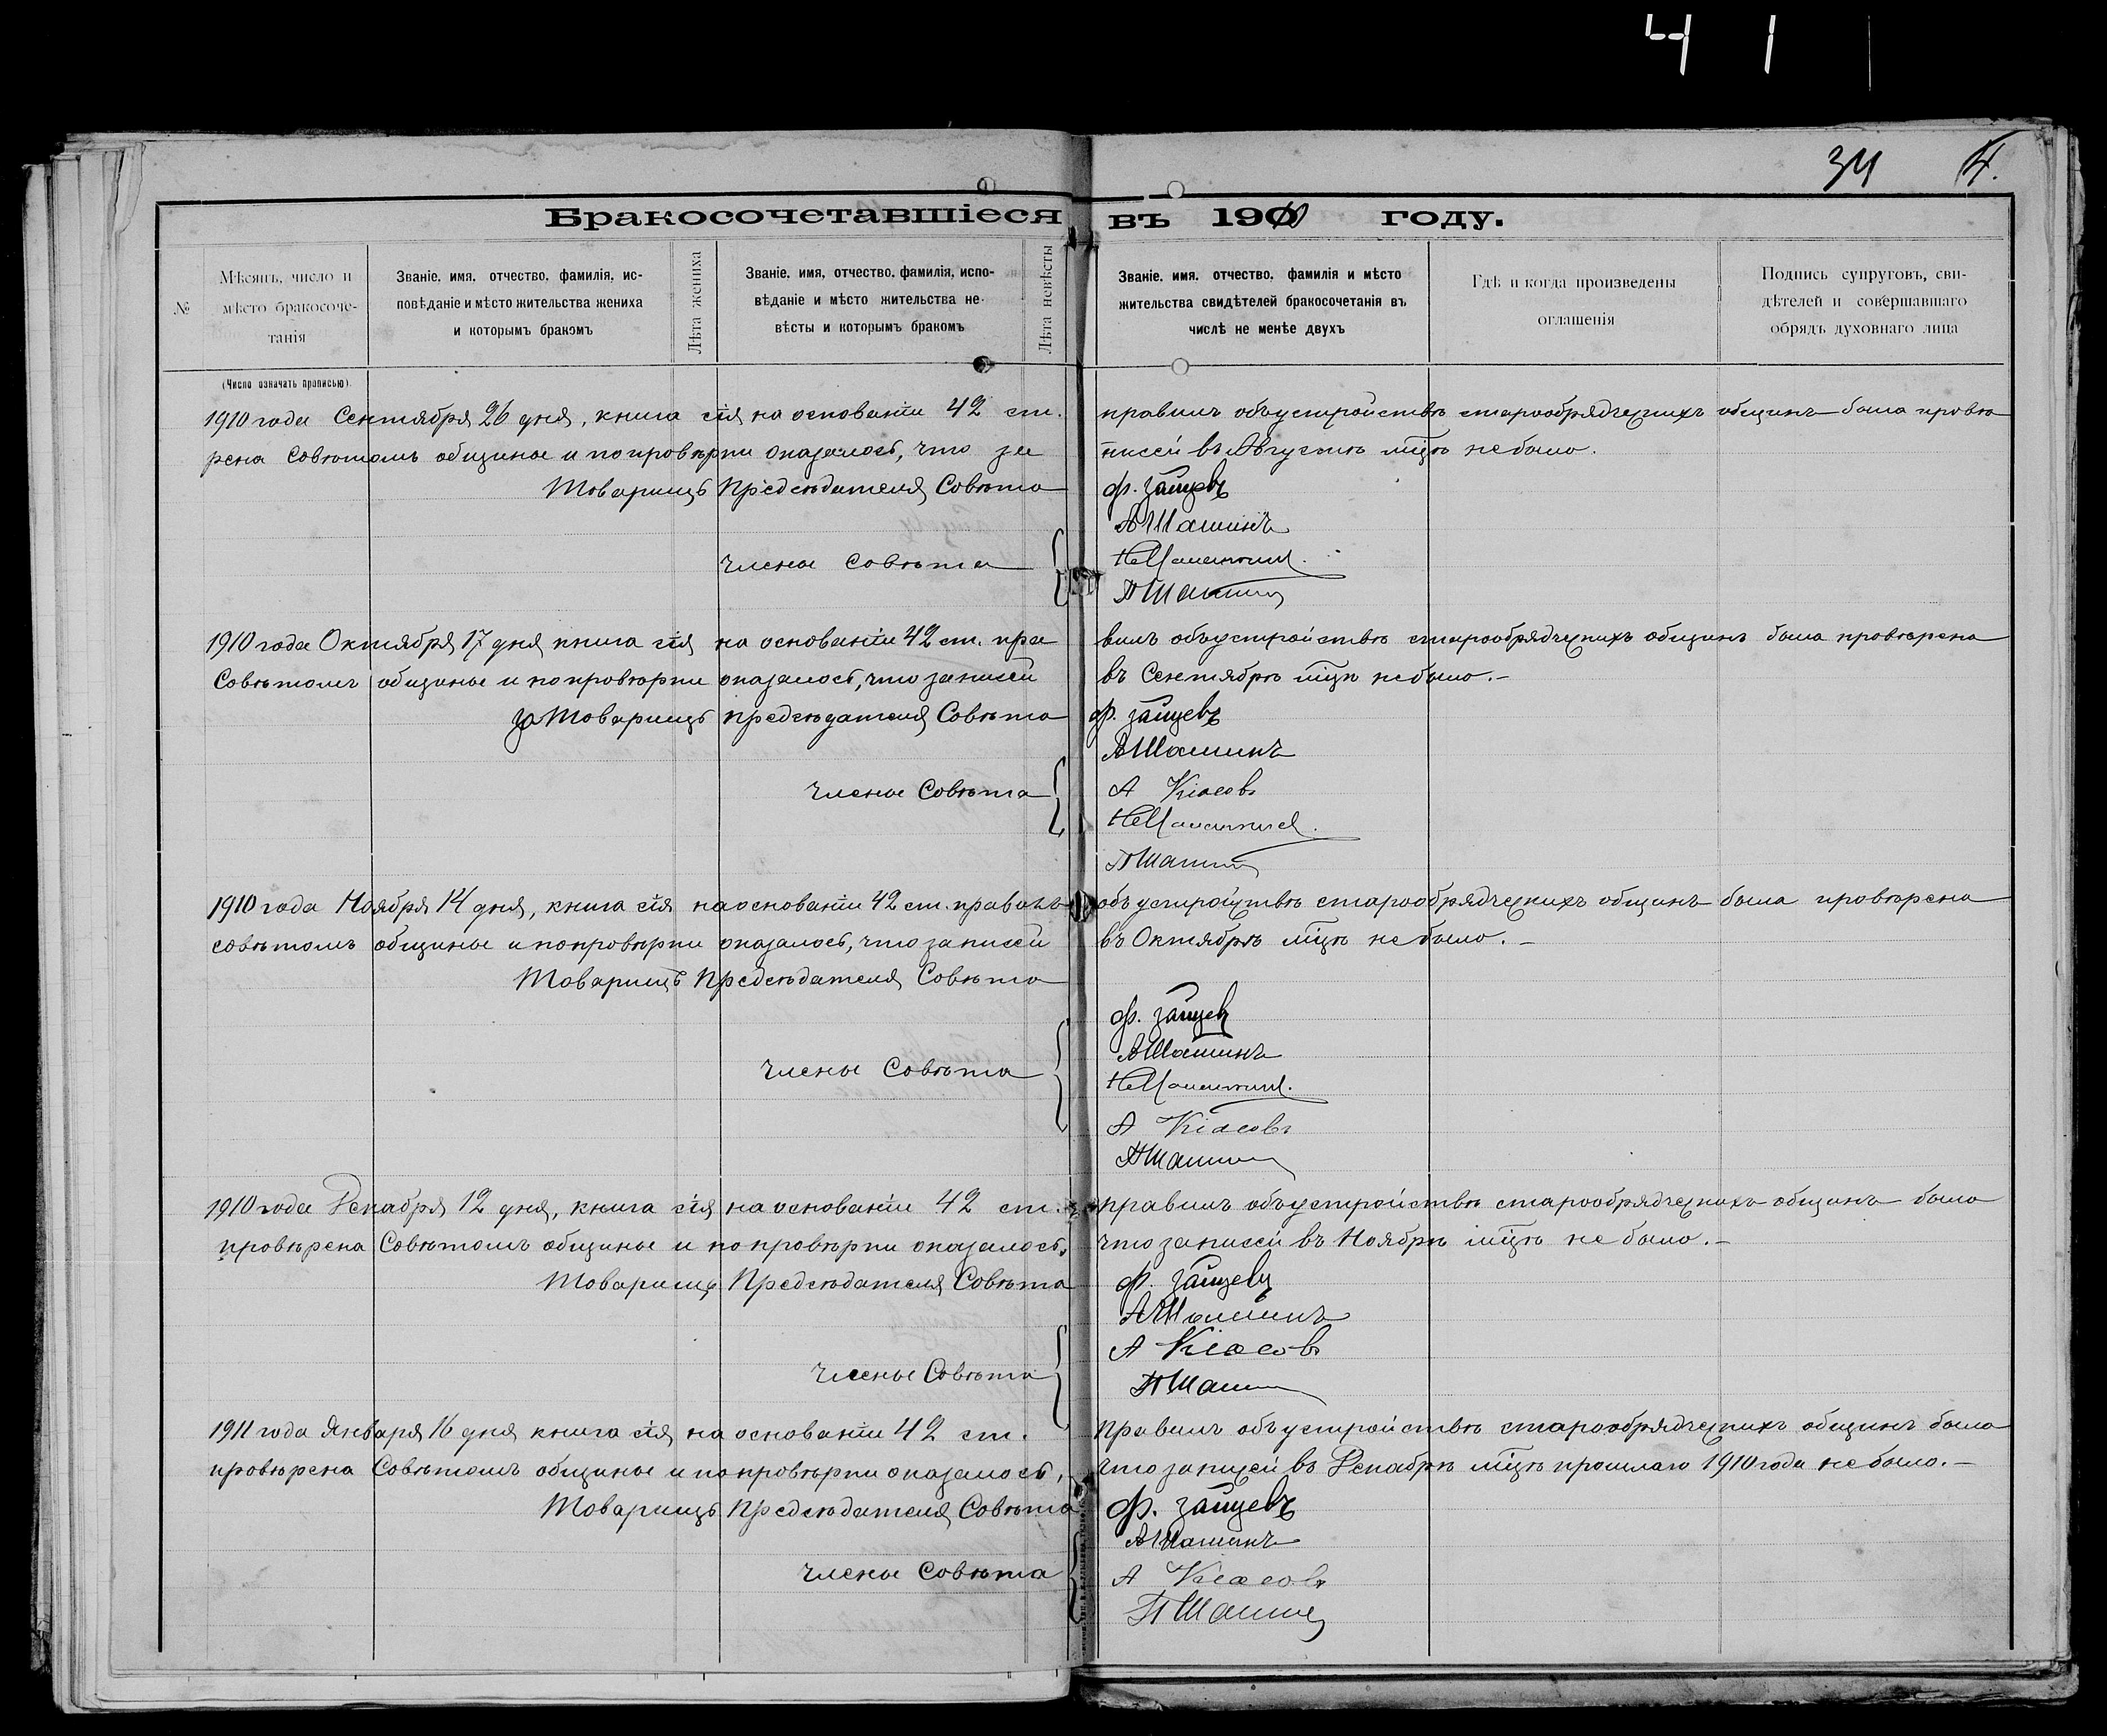 4 1
34 4.
Бракосочетавшіеся въ 1910 году.
№
Мѣсяцъ, число и
мѣсто бракосоче-
танія
(Число означать прописью).
Званіе, имя, отчество, фамилія, ис-
повѣданіе и мѣсто жительства жениха
и которымъ бракомъ
Лѣта жениха
Званіе, имя, отчество, фамилія, испо-
вѣданіе и мѣсто жительства не-
вѣсты и которымъ бракомъ
Лѣта невѣсты
Званіе, имя, отчество, фамилія и мѣсто
жительства свидѣтелей бракосочетанія въ
числѣ не менѣе двухъ
Гдѣ и когда произведены
оглашенія
Подпись супруговъ, сви-
дѣтелей и совершавшаго
обрядъ духовнаго лица
1910 года Сентября 26 дня, книга сія на основаніи 42 ст. правилъ объ устройствѣ старообрядческихъ общинъ была провѣ
рена Совѣтомъ общины и по провѣрки оказалось, что за писей въ Августѣ мцѣ не было.
Товарищъ Предсѣдателя Совѣта Ф. Зайцевъ
А Шашинъ
Члены Совѣта
П Шашин
1910 года Октября 17 дня книга сія на основаніи 42 ст. пра вилъ объ устройствѣ старообрядческихъ общинъ была провѣрена
Совѣтомъ общины и по провѣрки оказалось, что записей въ Сентябрѣ мцѣ не было. –
За Товарищъ предсѣдателя Совѣта Ф. Зайцевъ
А Шашинъ
Члены Совѣта А Кіасовъ
П Шашин
1910 года Ноября 14 дня, книга сія на основаніи 42 ст. правилъ объ устройствѣ старообрядческихъ общинъ была провѣрена
совѣтомъ общины и по провѣрки оказалось, что записей въ Октябрѣ мцѣ не было. –
Товарищъ Предсѣдателя Совѣта
Ф. Зайцевъ
А Шашинъ
Члены Совѣта
А Кіасовъ
П Шашин
1910 года Декабря 12 дня, книга сія на основаніи 42 ст. правилъ объ устройствѣ старообрядческихъ общинъ была
провѣрена Совѣтомъ общины и по провѣрки оказалось, что записей въ Ноябрѣ мцѣ не было. –
Товарищъ Предсѣдателя Совѣта Ф. Зайцевъ
А Шашинъ
А Кіасовъ
Члены Совѣта
П Шашин
1911 года Января 16 дня книга сія на основаніи 42 ст. Правилъ объ устройствѣ старообрядческихъ общинъ была
провѣрена Совѣтомъ общины и по провѣрки оказалось, что записей въ Декабрѣ мцѣ прошлаго 1910 года не было. –
Товарищъ Предсѣдателя Совѣта Ф. Зайцевъ
А Шашинъ
Члены Совѣта А Кіасовъ
П Шашин